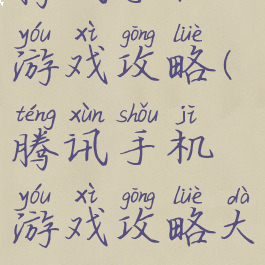 yóu xì gōng lüè
游戏攻略(
téng xùn shǒu jī
腾讯手机
yóu xì gōng lüè dà
游戏攻略大